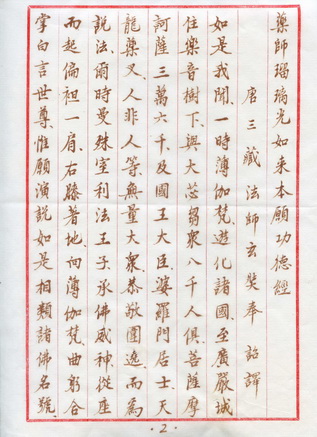 藥師瑠璃光如来本願功德經
唐三藏法師玄奘奉 詔譯
如是我聞一時薄伽梵遊化諸國至廣嚴城
住樂音樹下與大苾芻衆八千人俱菩薩摩
訶薩三萬六千及國王大臣婆羅門居士天
龍藥叉人非人等無量大衆恭敬圍遶而為
說法爾時曼殊室利法王子承佛威神從座
而起偏袒一肩右膝著地向薄伽梵曲躬合
掌白言世尊惟願演說如是相類諸佛名號
·2·